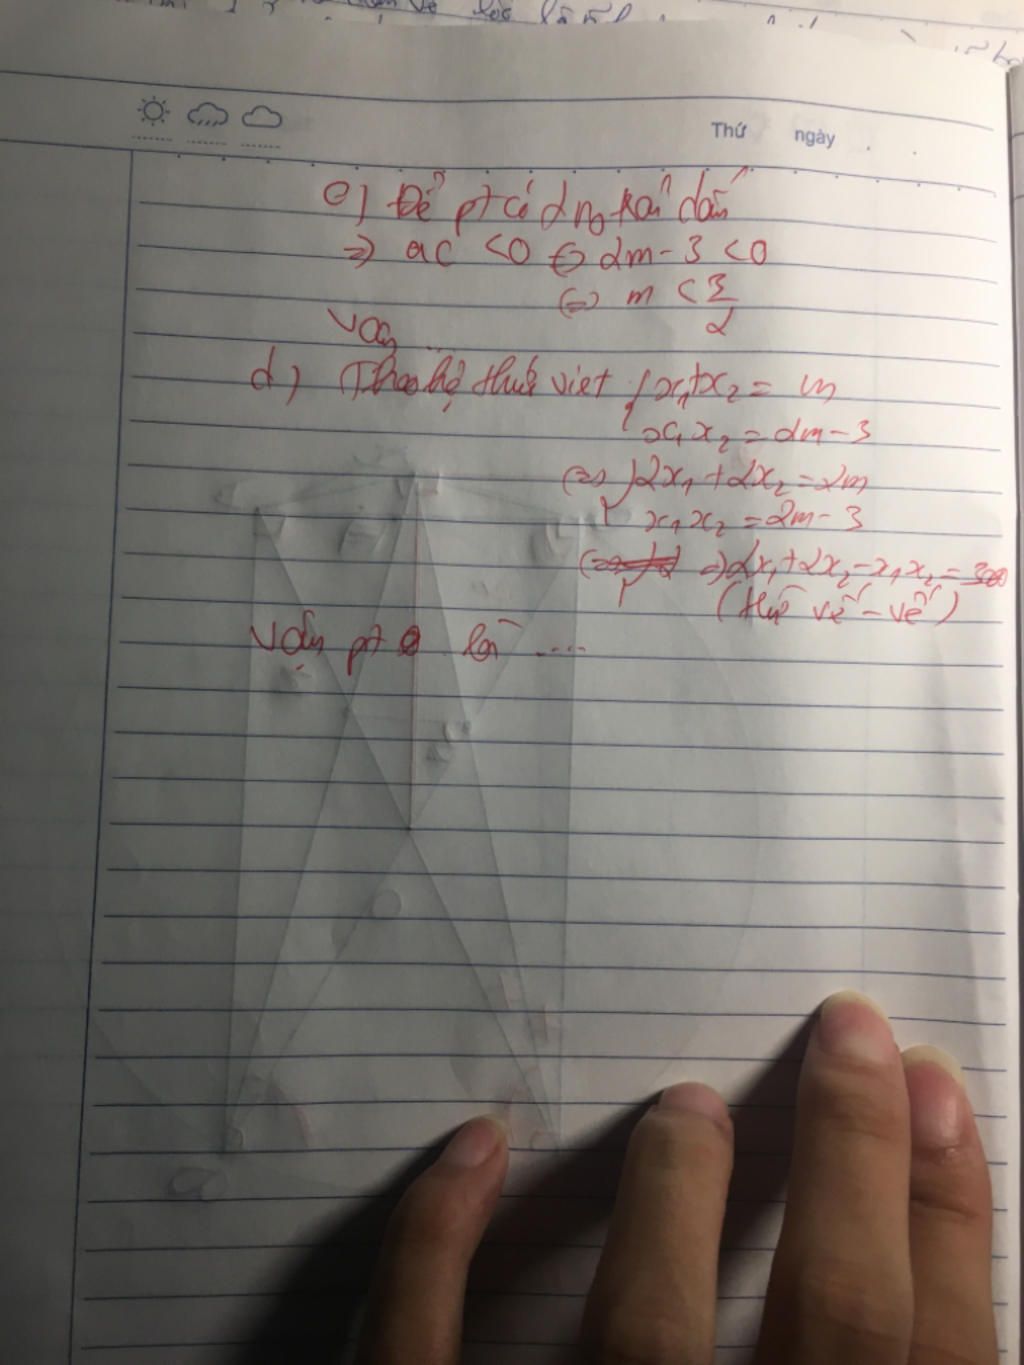 Thứ ngày
c) Để pt có 2 no trái dấu
=> ac < 0 <=> 2m - 3 < 0
<=> m < 3/2
Vậy ...
d) Theo hệ thức viet { x₁ + x₂ = m
x₁x₂ = 2m - 3
<=> { 2x₁ + 2x₂ = 2m
x₁x₂ = 2m - 3
=> 2x₁ + 2x₂ - x₁x₂ = 3
(vế - vế)
Vậy pt là ....